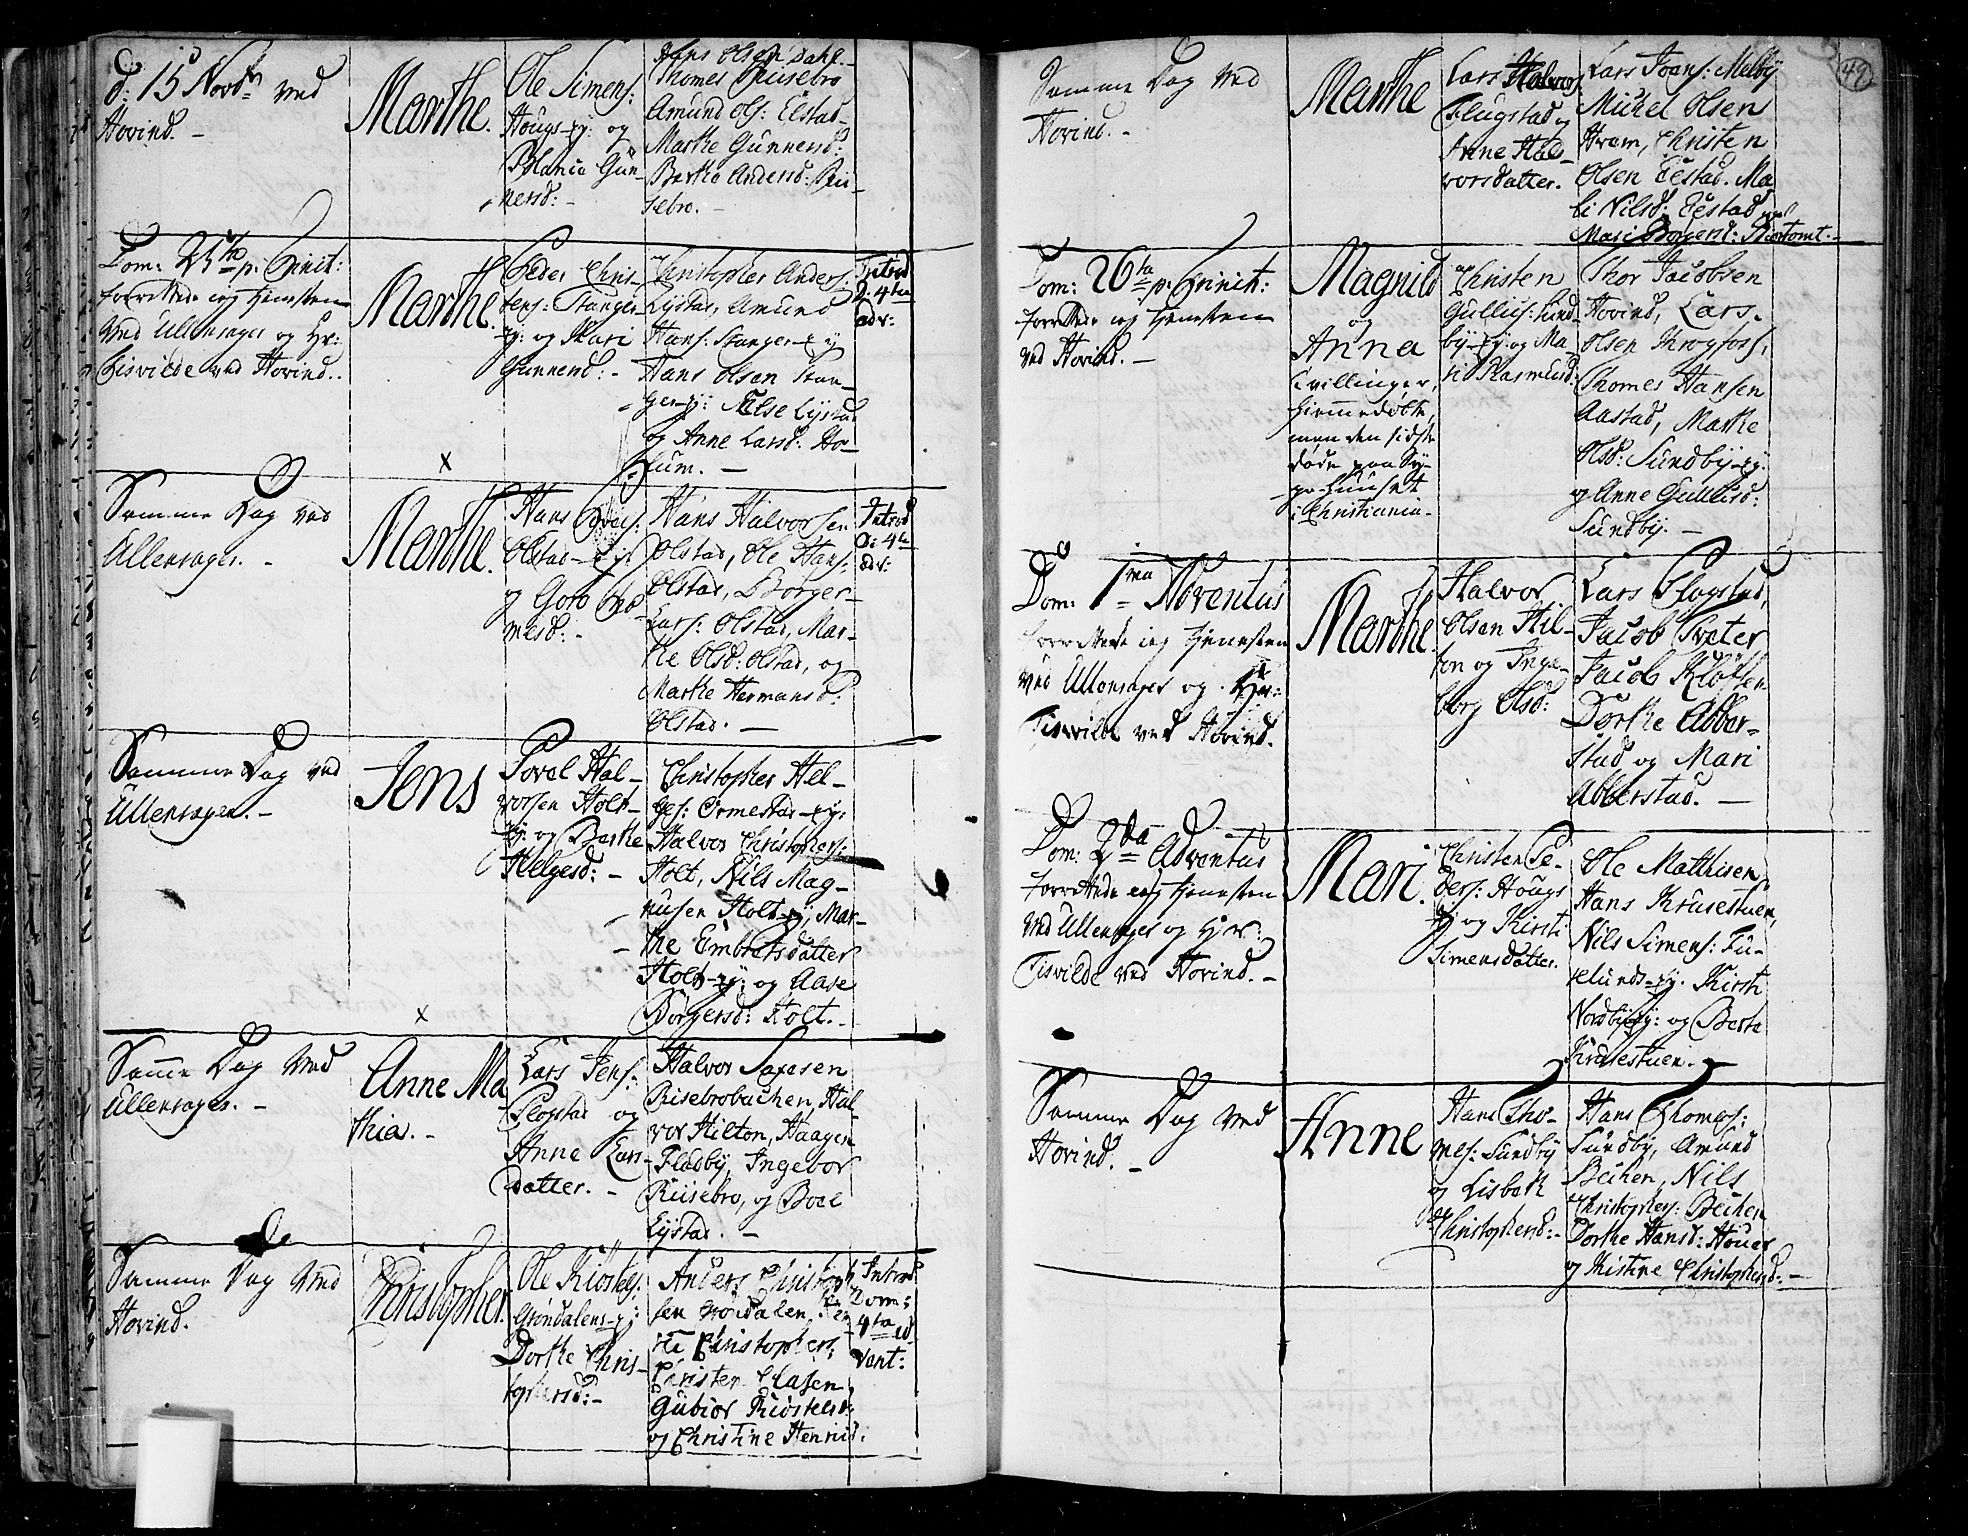 d: 15 Novbr ved
Hovind. -
Marthe.
Ole Simens:
Hougs-ey: og
Maria Gun-
nersd: -
Hans Olsen Dahl.
Thomes Riisebro
Amund Ols: Elstad
Marthe Gunnersd:
Berthe Andersd: Rii-
sebro. -
Dom: 25ta p: Trinit:
forrettede ieg tjenesten
ved Ullensager og Hr:
Tisvilde ved Hovind.
Marthe.
Peder Chris-
tens: Stanger-
ey: og Kari
Gunnersd: -
Christopher Anders:
Lystad, Amund
Hans: Stanger-ey
Hans Olsen Stan-
ger-ey: Else Lystad
og Anne Larsd: Ho-
lum. -
Introd
D: 4ta
adv:
Samme Dag ved
Ullensager. -
Marthe.
Hans
Olstad-ey:
og Goro Tho-
mesd: -
Hans Halvorsen
Olstad, Ole Hans:
Olstad, Børger
Lars: Olstad, Mar-
the Olsd: Olstad, og
Marthe Hermansd:
Olstad. -
Introd
D: 4ta
adv:
Samme Dag ved
Ullensager. -
Jens
Povel Hal-
vorsen Holt-
ey: og Berthe
Helgesd: -
Christopher Hel-
ges: Ormestad-ey:
Halvor Christophers:
Holt, Nils Mag-
nusen Holt-ey, Mar-
the Embretsdatter
Holt-ey: og Aase
Børgersd: Holt. -
Samme Dag ved
Ullensager. -
Anne Ma
thia. -
Lars Jens:
Flogstad og
Anne Lars-
datter. -
Halvor Saxesen
Risebrobachen, Hal-
vor Hilton, Haagen
Fladby, Ingebor
Riisebro, og Boel
Lystad. -
Samme Dag ved
Hovind.
Christopher.
Ole Kiøstels:
Grøndalens-ey:
Dorthe Chris-
tophersd: -
Anders Christoph
sen Grøndalen,
Christophers:
Christen Clasen
Gubiør Kiøstelsd:
og Christine Henrisd:
Introd
Dom:
4ta ad
vent:
49
Samme Dag ved
Hovind. -
Marthe
Lars Halvors
Flugstad og
Anne Hal-
vorsdatter.
Lars Joans: Melby
Michel Olsen
Hram, Christen
Olsen Eestad. Ma
li Nilsd: Eestad og
Mari Børgersd: -
Dom: 26ta p: Trinit:
forrettede ieg tjenesten
ved Hovind. -
Magnild
og
Anna
tvillinger,
hjemmedøbte,
men den sidste
døde paa Sy-
ge huuset
i Christiania. -
Christen
Gullus: Sund-
by-ey: og Ma
ri Rasmusd:
Thor Jacobsen
Hovind, Lars
Olsen Krogfoss,
Thomes Hansen
Aastad, Marthe
Olsd: Sundby-ey:
og Anne Gullusd:
Sundby. -
Dom: 1ma Adventus
forrettede ieg tjenesten
ved Ullensager og Hr:
Tisvilde ved Hovind.
Marthe.
Halvor
Olsen Hil-
ton og Inge-
borg Olsd:
Lars Flogstad,
Jacob Tveter
Jacob Kløfsen
Dorthe Abber-
stad og Mari
Abberstad. -
Dom: 2da Adventus
forrettede ieg tjenesten
ved Ullensager og Hr:
Tisvilde ved Hovind. -
Mari.
Christen Pe-
ders: Hougs
ey: og Kirsti
Simensdatter.
Ole Mathisen,
Hans Krusestuen,
Nils Simens: Fu-
relunds-ey. Kirsti
Nordby-ey: og Berte
Krusestuen. -
Samme Dag ved
Hovind. -
Anne
Hans Tho-
mes: Sundby
og Lisbeth
Christophersd: -
Hans Thomes:
Sundby, Amund
Bechen, Nils
Christophers: Bechen
Dorthe Hansd: Houer
og Kistine Christophersd: -